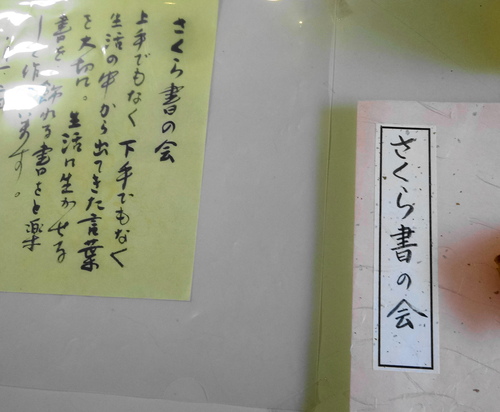 さくら書の会
上手でもなく 下手でもなく
生活の中から出てきた言葉
を大切に。生活に生かせる
書を 飾れる書をと楽
して作 います。
さくら書の会